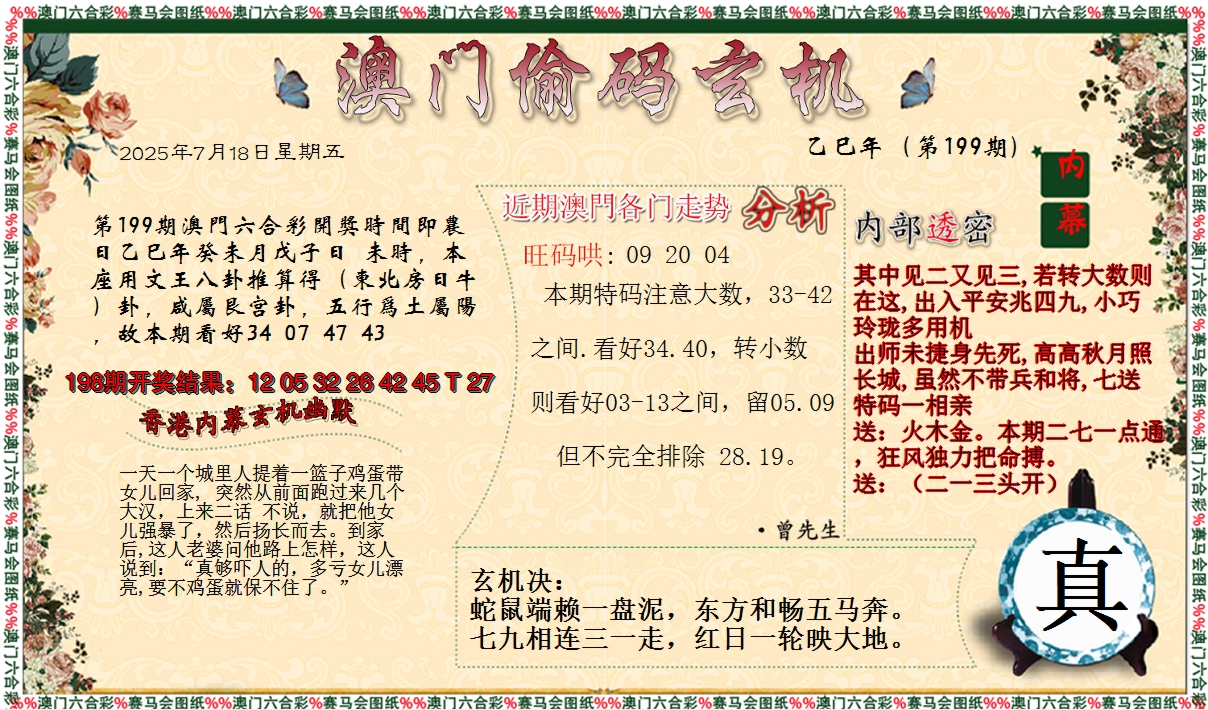 %%澳门六合彩%赛马会图纸%%澳门六合彩%赛马会图纸%%澳门六合彩%赛马会图纸%%澳门六合彩%赛马会图纸%%澳门六合彩%赛马会图纸%%澳门六合彩%赛马会图纸%%
澳门偷码玄机
2025年7月18日星期五
乙巳年（第199期）
内幕
第199期澳門六合彩開獎時間即農
日乙巳年癸未月戊子日 未時，本
座用文王八卦推算得（東北房日牛
）卦，咸屬艮宫卦，五行爲土屬陽
，故本期看好34 07 47 43
198期开奖结果：12 05 32 26 42 45 T 27
香港内幕玄机幽默
一天一个城里人提着一篮子鸡蛋带
女儿回家, 突然从前面跑过来几个
大汉，上来二话 不说，就把他女
儿强暴了，然后扬长而去。到家
后,这人老婆问他路上怎样，这人
说到：“真够吓人的，多亏女儿漂
亮,要不鸡蛋就保不住了。”
近期澳門各门走势 分析
旺码哄: 09 20 04
本期特码注意大数，33-42
之间.看好34.40，转小数
则看好03-13之间，留05.09
但不完全排除 28.19。
·曾先生
内部透密
其中见二又见三,若转大数则
在这,出入平安兆四九,小巧
玲珑多用机
出师未捷身先死,高高秋月照
长城,虽然不带兵和将,七送
特码一相亲
送：火木金。本期二七一点通
，狂风独力把命搏。
送：（二一三头开）
玄机决：
蛇鼠端赖一盘泥，东方和畅五马奔。
七九相连三一走，红日一轮映大地。
真
%%澳门六合彩%赛马会图纸%%澳门六合彩%赛马会图纸%%澳门六合彩%赛马会图纸%%澳门六合彩%赛马会图纸%%澳门六合彩%赛马会图纸%%澳门六合彩%赛马会图纸%%